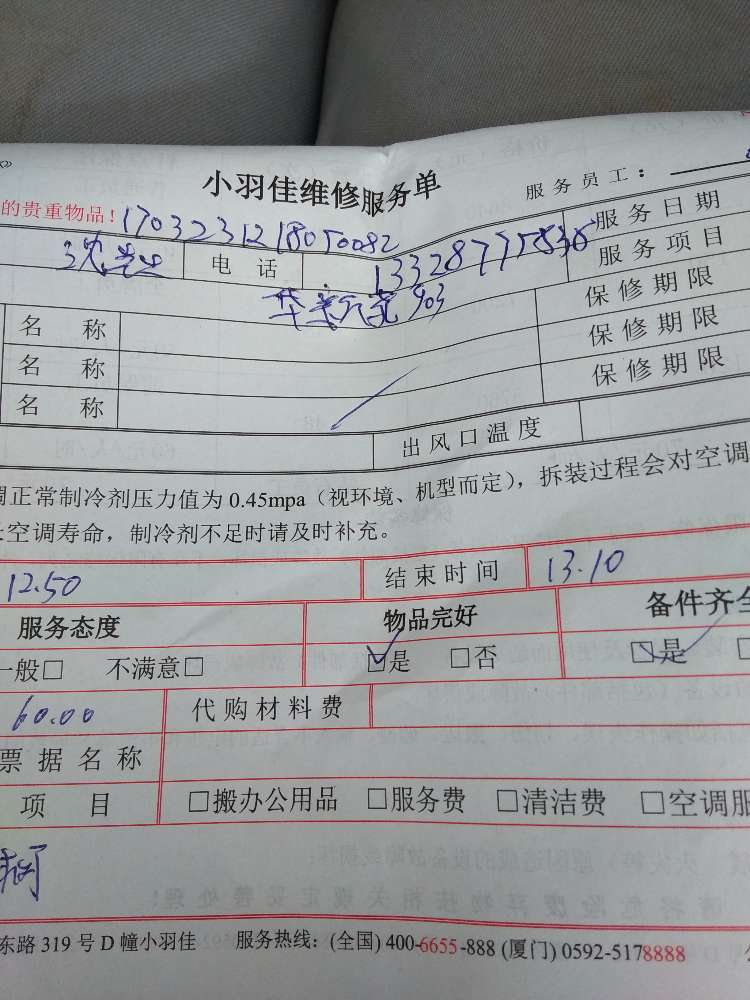 小羽佳维修服务单
服务员工：
的贵重物品！1703231218050082
服务日期
沈先生 电话 13328775836
服务项目
华美公寓903
保修期限
名称
保修期限
名称
保修期限
名称
出风口温度
调正常制冷剂压力值为0.45mpa（视环境、机型而定），拆装过程会对空调
空调寿命，制冷剂不足时请及时补充。
12.50 结束时间 13.10
服务态度 物品完好 备件齐全
一般□ 不满意□ ☑是 □否 ☑是
60.00 代购材料费
票据名称
项目 □搬办公用品 □服务费 □清洁费 □空调服
东路319号D幢小羽佳 服务热线：(全国) 400-6655-888 (厦门) 0592-5178888